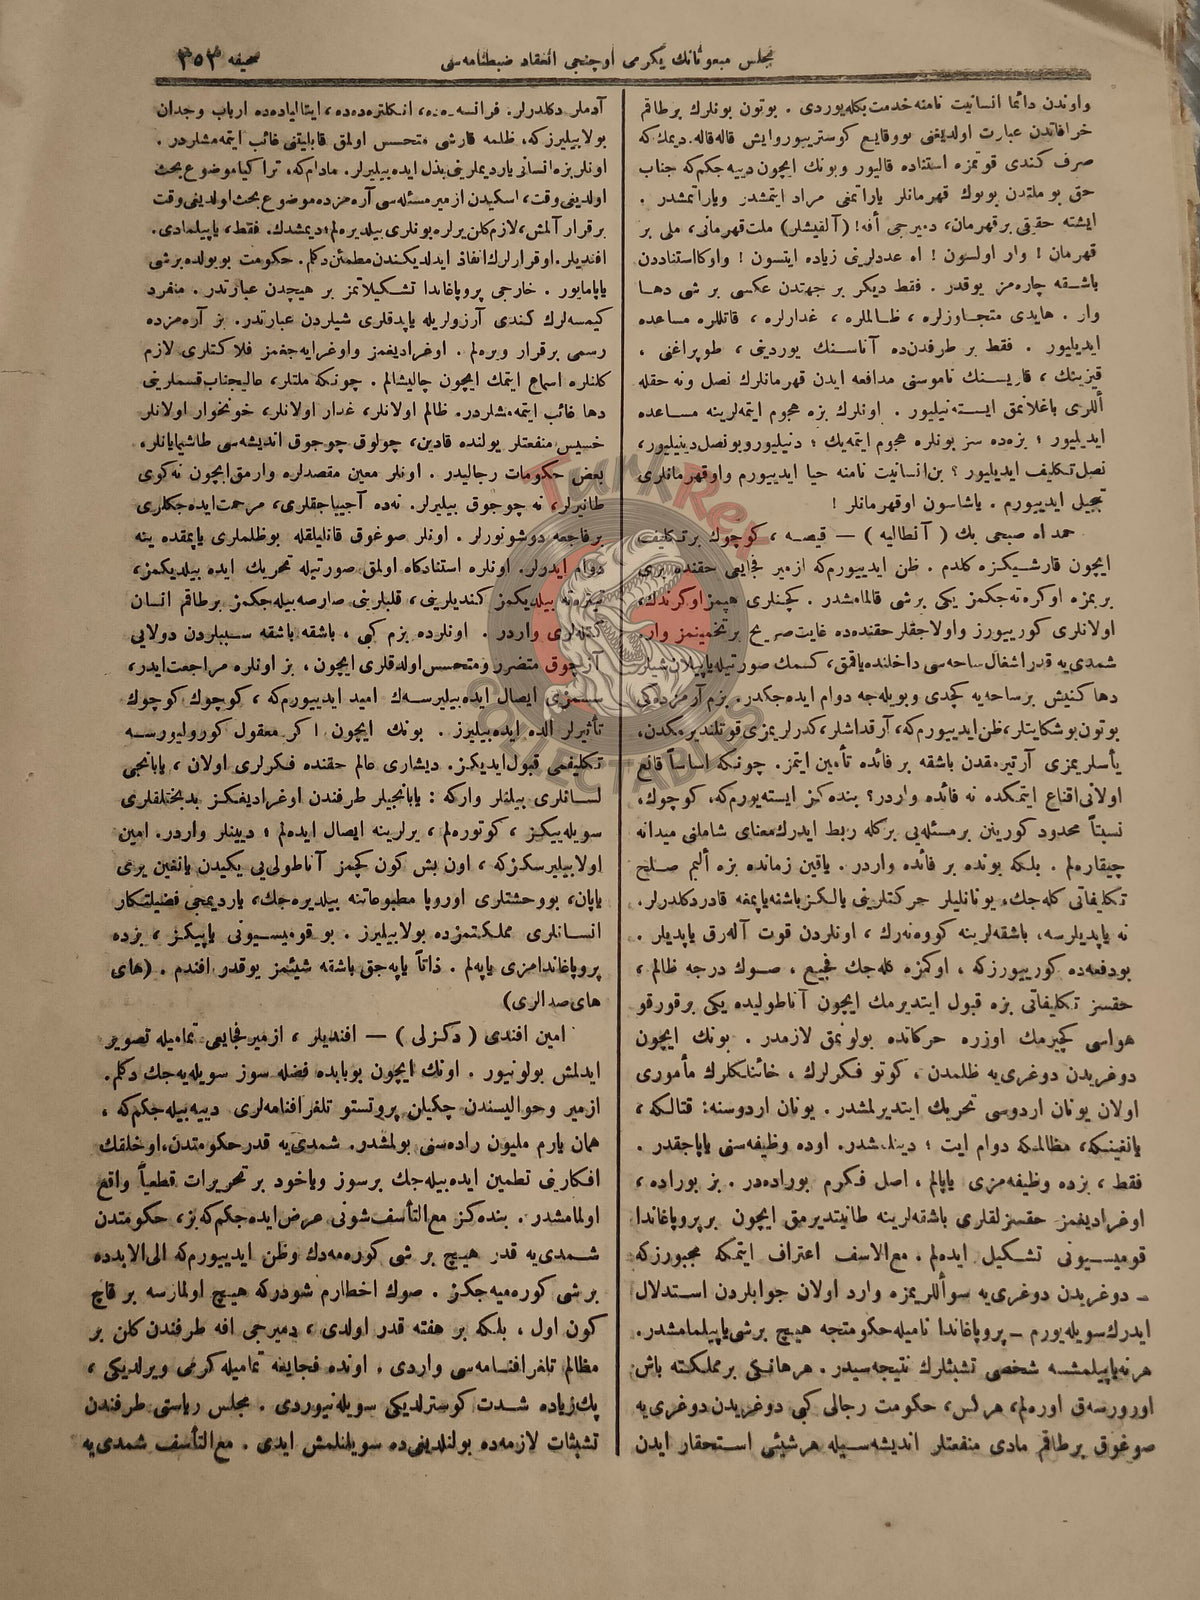 مجلس مبعوثانك يكرمى اوچنجى انعقاد ضبطنامه‌سى
صحيفه ٣٥٣
واوندن دائما انسانيت نامنه خدمت بكله‌يوردى . بوتون بونلرك برطاقم
خرافاتدن عبارت اولديغنى بووقايع كوستريیور وايش قاله قاله . ديمك كه
صرف كندى قوتمزه استناده قاليور وبونك ايچون دييه جكم كه جناب
حق بو ملتدن بويوك قهرمانلر ياراتمغى مراد ايتمشدر وياراتمشدر .
ايشته حقيقى برقهرمان، دميرجى أفه! (آلقيشلر) ملت قهرمانى، ملى بر
قهرمان ! وار اولسون ! اه عددلرينى زياده ايتسون ! واوكا استناددن
باشقه چاره‌مز يوقدر . فقط ديكر بر جهتدن عكسى بر شى دها
وار . هايدى متجاوزلره ، ظالملره ، غدارلره ، قاتللره مساعده
ايديليور . فقط بر طرفدن ده آناسنك يوردينى ، طوپراغنى ،
قيزينك ، قاريسنك ناموسنى مدافعه ايدن قهرمانلرك نصل ونه حقله
أللرى باغلانمق ايسته‌نيليور . اونلرك بزه هجوم ايتمه‌لرينه مساعده
ايديليور ؛ بزه‌ده سز بونلره هجوم ايتمه‌يك ؛ دنيليور و بو نصل دينيليور،
نصل تكليف ايديليور ؟ بن انسانيت نامنه حيا ايدييورم واوقهرمانلرى
تبجيل ايدييورم . ياشاسون اوقهرمانلر !
حمد اه صبحى بك ( آنطاليه ) — قيصه ، كوچوك برتكليف
ايچون قارشيكزه كلدم . ظن ايدييورم كه ازمير فجايعى حقنده برى
بريمزه اوكره‌ته جكمز يكى برشى قالمامشدر . كچنلرى هپمز اوكرندك،
اولانلرى كورييورز واولاجقلر حقنده‌ده غايت صريح برتخمينمز وار.
شمدى‌يه قدر اشغال ساحه‌سى داخلنده ياقمق، كسمك صورتيله ياپيلان شيلر
دها كنيش برساحه‌يه كچدى وبويله‌جه دوام ايده‌جكدر. بزم آره‌مزده‌كى
بوتون بوشكايتلر، ظن ايدييورم كه، آرقداشلر، كدرلريمزى قوتلنديرمكدن،
يأسلريمزى آرتيرمقدن باشقه بر فائده تأمين ايتمز. چونكه اساساً قانع
اولانى اقناع ايتمكده نه فائده واردر؟ بنده‌كز ايسته‌يورم كه، كوچوك،
نسبتاً محدود كورينن برمسئله‌يى بركله ربط ايدرك معناى شاملنى ميدانه
چيقاره‌لم . بلكه بونده بر فائده واردر . ياقين زمانده بزه أليم صلح
تكليفاتى كله‌جك، يونانليلر حركتلرينى يالكز باشنه ياپمغه قادر دكلدرلر.
نه ياپديلرسه، باشقه‌لرينه كووه‌نه‌رك ، اونلردن قوت آله‌رق ياپديلر .
بودفعه‌ده كورييورز كه ، اوكمزه كله‌جك فجيع ، صوك درجه ظالم ،
حقسز تكليفاتى بزه قبول ايتديرمك ايچون آناطوليده يكى برقورقو
هواسى كچيرمك اوزره حركاتده بولونمق لازمدر . بونك ايچون
دوغريدن دوغرى‌يه ظلمدن ، كوتو فكرلرك ، خائنلكلرك مأمورى
اولان يونان اردوسى تحريك ايتديرلمشدر . يونان اردوسنه: قتالكه ،
يانغينكه، مظالمكه دوام ايت ؛ دينلمشدر. اوده وظيفه‌سنى ياپاجقدر .
فقط ، بزده وظيفه‌مزى ياپالم . اصل فكرم بوراده‌در . بز بوراده ،
اوغراديغمز حقسزلقلرى باشقه‌لرينه طانيتديرمق ايچون برپروپاغاندا
قوميسيونى تشكيل ايده‌لم . مع‌الاسف اعتراف ايتمكه مجبورز كه
ـ دوغريدن دوغرى‌يه سؤاللريمزه وارد اولان جوابلردن استدلال
ايدرك سويله‌يورم ـ پروپاغاندا ناميله حكومتجه هيچ برشى ياپيلمامشدر.
هرنه ياپيلمشسه شخصى تشبثلرك نتيجه‌سيدر . هرهانكى برمملكته باش
اورورسه‌ق اوره‌لم، هركس، حكومت رجالى كبى دوغريدن دوغرى‌يه
صوغوق برطاقم مادى منفعتلر انديشه‌سيله هرشيئى استحقار ايدن
آدملر دكلدرلر. فرانسه‌ده، انكلتره‌ده‌ده، ايتالياده‌ده ارباب وجدان
بولابيليرز كه، ظلمه قارشى متحسس اولمق قابليتنى غائب ايتمه‌مشلردر .
اونلر بزه انسانى يارديملرينى بذل ايده بيليرلر. مادام كه، تراكيا موضوع بحث
اولدينى وقت، اسكيدن ازمير مسئله‌سى آره‌مزده موضوع بحث اولدينى وقت
برقرار آلمش، لازم كلن يرلره بونلرى بيلديره‌لم؛ ديمشدك. فقط، ياپيلمادى.
افنديلر. اوقرارلرك انفاذ ايدلديكندن مطمئن دكلم. حكومت بو يولده برشى
ياپامايور . خارجى پروپاغاندا تشكيلاتمز بر هيچدن عبارتدر . منفرد
كيمسه‌لرك كندى آرزولريله ياپدقلرى شيلردن عبارتدر. بز آره‌مزده
رسمى برقرار ويره‌لم . اوغراديغمز واوغرايه‌جغمز فلاكتلرى لازم
كلنلره اسماع ايتمك ايچون چاليشالم . چونكه ملتلر، عاليجناب قسملرينى
دها غائب ايتمه‌مشلردر. ظالم اولانلر، غدار اولانلر، خونخوار اولانلر
خسيس منفعتلر يولنده قادين، چولوق چوجوق انديشه‌سى طاشيمايانلر،
بعض حكومات رجاليدر . اونلر معين مقصدلره وارمق ايچون نه كوى
طانيرلر، نه چوجوق بيليرلر. نه‌ده آجيياجقلرى، مرحمت ايده‌جكلرى
برفاجعه دوشونورلر. اونلر صوغوق قانليلقله بوظلملرى ياپمقده ينه
دوام ايدرلر. اونلره استنادكاه اولمق صورتيله تحريك ايده بيلديكمز،
كنديلرينى، قلبلرينى صارصه بيله‌جكمز برطاقم انسان
كتله‌لرى واردر . اونلرده بزم كبى ، باشقه باشقه سببلردن دولايى
آز چوق متضرر ومتحسس اولدقلرى ايچون ، بز اونلره مراجعت ايدر،
سسمزى ايصال ايده‌بيليرسه‌ك اميد ايدييورم كه ، كوچوك كوچوك
تأثيرلر الده ايده‌بيليرز . بونك ايچون اكر معقول كورولیورسه
تكليفمى قبول ايديكز. ديشارى عالم حقنده فكرلرى اولان ، يابانجى
لسانلرى بيلنلر واركه : يابانجيلر طرفندن اوغراديغكز بدبختلقلرى
سويله‌ييكز ، كوتوره‌لم ، يرلرينه ايصال ايده‌لم ؛ ديينلر واردر. امين
اولابيليرسكز كه ، اون بش كون كچمز آناطولى‌يى يكيدن يانغين يرى
ياپان، بووحشتلرى اوروپا مطبوعاتنه بيلديره‌جك، يارديمجى فضيلتكار
انسانلرى مملكتمزده بولابيليرز . بو قوميسيونى ياپيكز ، بزده
پروپاغاندامزى ياپه‌لم . ذاتاً ياپه‌جق باشقه شيئمز يوقدر افندم . (هاى
هاى صدالرى)
امين افندى ( دكزلى ) — افنديلر ، ازمير فجايعى تماميله تصوير
ايدلمش بولونيور . اونك ايچون بوبابده فضله سوز سويله‌يه‌جك دكلم.
ازمير وحواليسندن چكيلن پروتستو تلغرافنامه‌لرى دييه بيله‌جكم كه ،
همان يارم مليون راده‌سنى بولمشدر. شمدى‌يه قدر حكومتدن، او خلقك
افكارينى تطمين ايده‌بيله‌جك برسوز وياخود بر تحريرات قطعياً واقع
اولمامشدر . بنده‌كز مع‌التأسف شونى عرض ايده‌جكم كه بز، حكومتدن
شمدى‌يه قدر هيچ بر شى كوره‌مه‌دك وظن ايدييورم كه الى‌الابدده
برشى كوره‌ميه‌جكز . صوك اخطارم شودركه هيچ اولمازسه بر قاچ
كون اول ، بلكه بر هفته قدر اولدى ، دميرجى افه طرفندن كلن بر
مظالم تلغرافنامه‌سى واردى . اونده فجايعه تماميله كرمى ويرلديكى ،
پك زياده شدت كوسترلديكى سويله‌نيوردى . مجلس رياستى طرفندن
تشبثات لازمه‌ده بولنلدينى‌ده سويلنلمش ايدى . مع‌التأسف شمدى‌يه